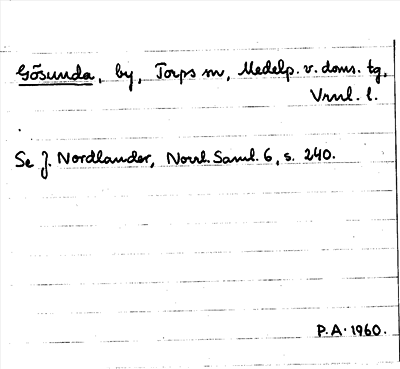 Gösunda, by, Torps sn, Medelp. v. doms. tg,
Vrnl. l.
Se J. Nordlander, Norrl. Saml. 6, s. 240.
P.A. 1960.